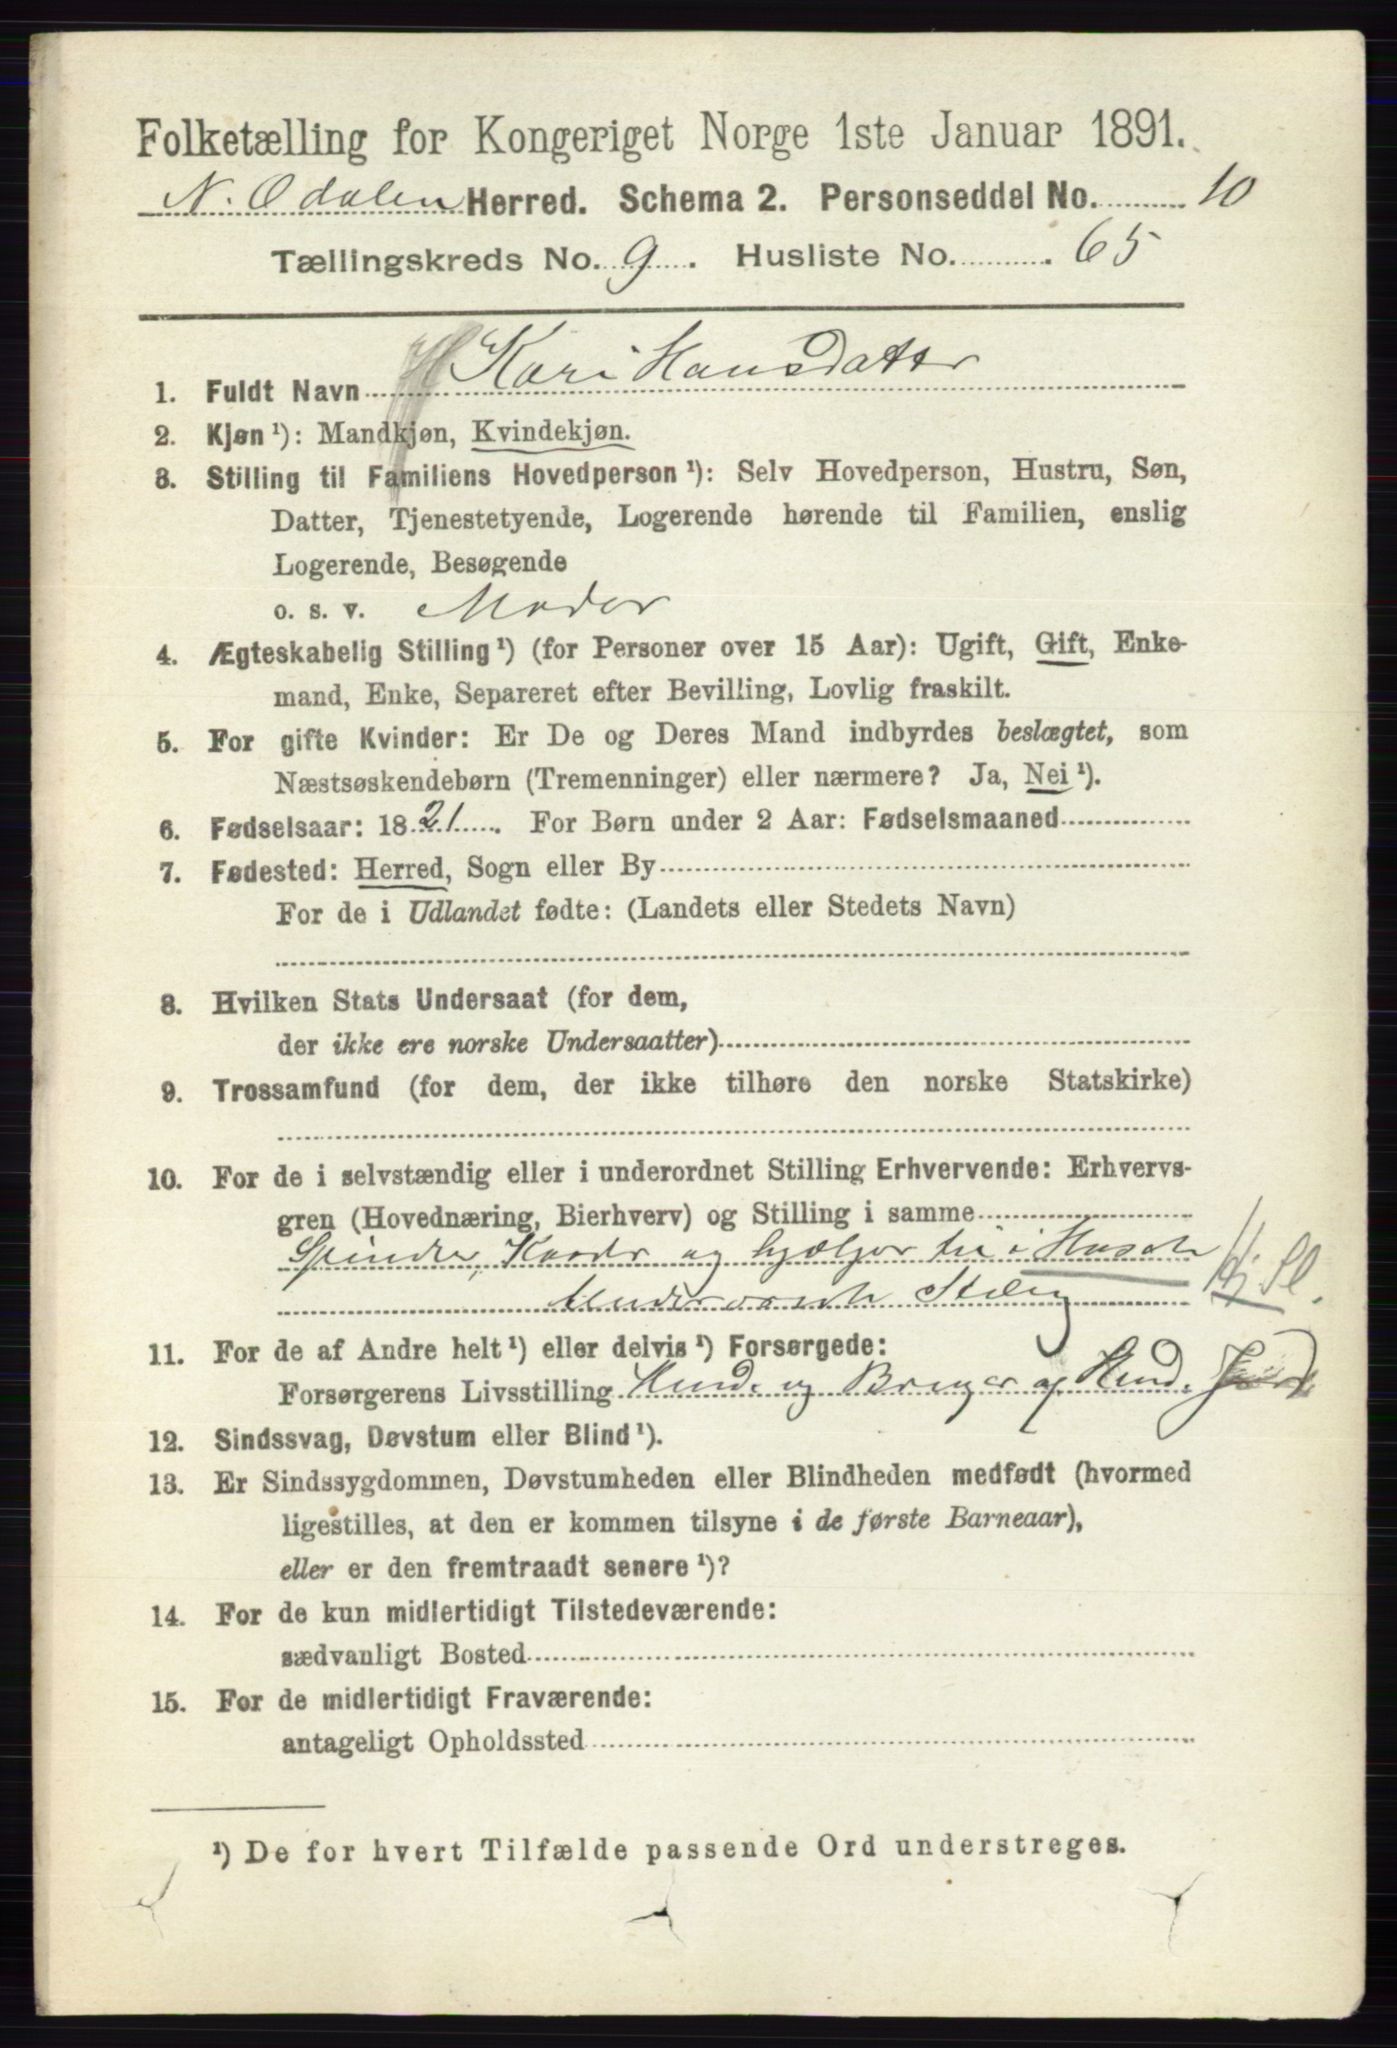 Folketælling for Kongeriget Norge 1ste Januar 1891.
N. Odalen Herred. Schema 2. Personseddel No. 10
Tællingskreds No. 9. Husliste No. 65
1. Fuldt Navn Kari Hansdatter
2. Kjøn ¹): Mandkjøn, Kvindekjøn.
3. Stilling til Familiens Hovedperson ¹): Selv Hovedperson, Hustru, Søn,
Datter, Tjenestetyende, Logerende hørende til Familien, enslig
Logerende, Besøgende
o. s. v. Moder
4. Ægteskabelig Stilling ¹) (for Personer over 15 Aar): Ugift, Gift, Enke-
mand, Enke, Separeret efter Bevilling, Lovlig fraskilt.
5. For gifte Kvinder: Er De og Deres Mand indbyrdes beslægtet, som
Næstsøskendebørn (Tremenninger) eller nærmere? Ja, Nei ¹).
6. Fødselsaar: 1821. For Børn under 2 Aar: Fødselsmaaned
7. Fødested: Herred, Sogn eller By
For de i Udlandet fødte: (Landets eller Stedets Navn)
8. Hvilken Stats Undersaat (for dem,
der ikke ere norske Undersaatter)
9. Trossamfund (for dem, der ikke tilhøre den norske Statskirke)
10. For de i selvstændig eller i underordnet Stilling Erhvervende: Erhvervs-
gren (Hovednæring, Bierhverv) og Stilling i samme
Spinder, Karder og hjælper til i Huset
Stilling
11. For de af Andre helt ¹) eller delvis ¹) Forsørgede:
Forsørgerens Livsstilling og Bruger af
12. Sindssvag, Døvstum eller Blind ¹).
13. Er Sindssygdommen, Døvstumheden eller Blindheden medfødt (hvormed
ligestilles, at den er kommen tilsyne i de første Barneaar),
eller er den fremtraadt senere ¹)?
14. For de kun midlertidigt Tilstedeværende:
sædvanligt Bosted
15. For de midlertidigt Fraværende:
antageligt Opholdssted
¹) De for hvert Tilfælde passende Ord understreges.